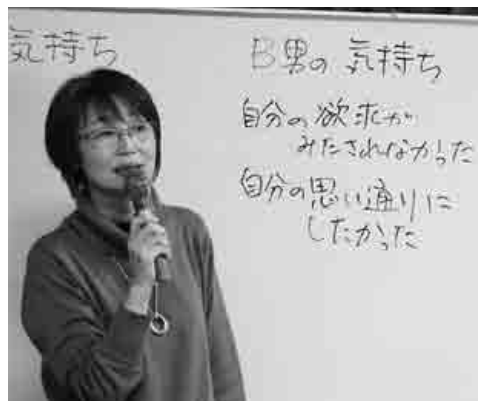 気持ち
B男の気持ち
自分の欲求が
みたされなかった
自分の思い通りに
したかった